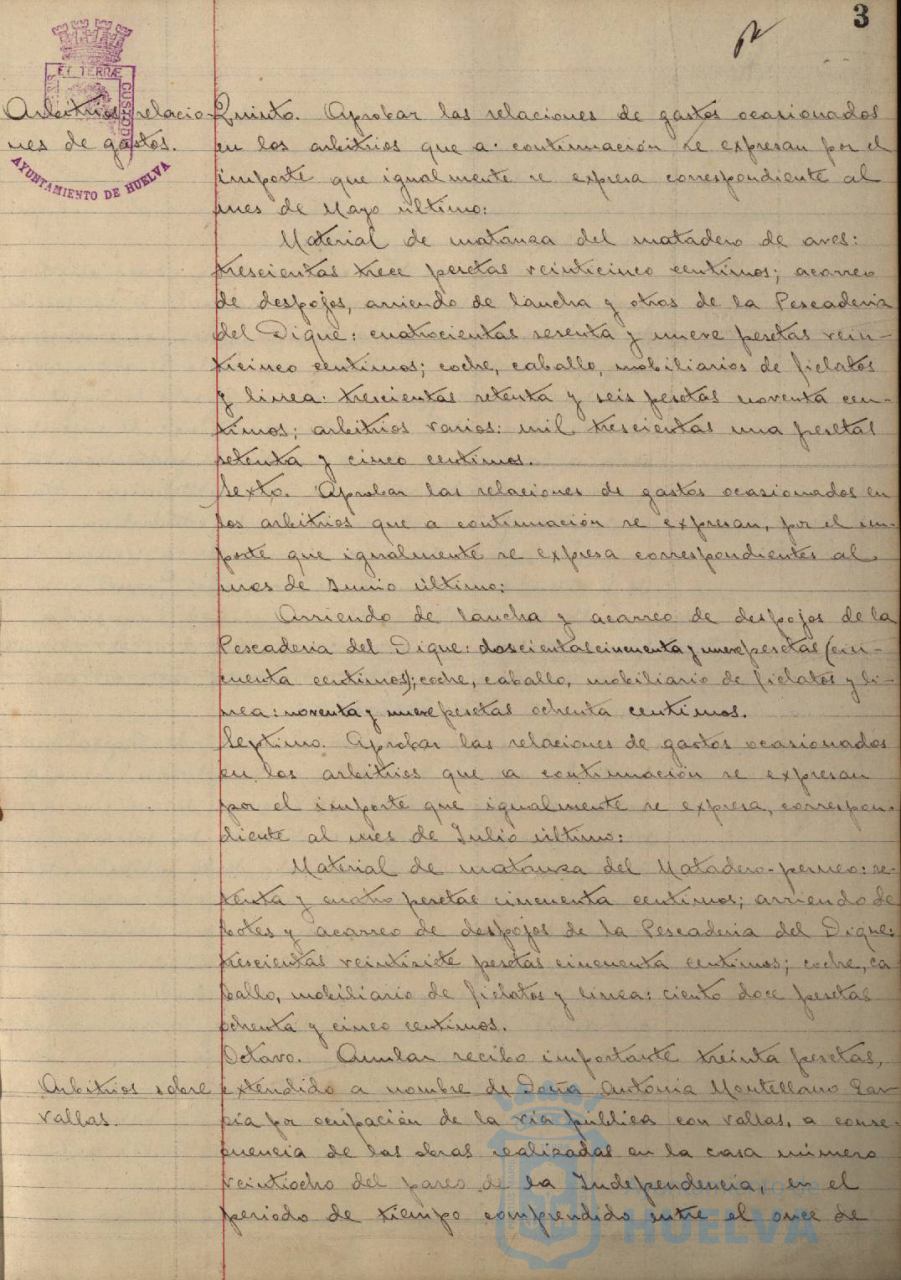 3
ET TERRÆ
CUSTODIA
AYUNTAMIENTO DE HUELVA
Arbitrios relacio-
nes de gastos.
Quinto. Aprobar las relaciones de gastos ocasionados
en los arbitrios que a continuación se expresan por el
importe que igualmente se expresa correspondiente al
mes de Mayo último:
Material de matanza del matadero de aves:
trescientas trece pesetas veinticinco centimos; acarreo
de despojos, arriendo de lancha y otros de la Pescaderia
del Dique: cuatrocientas sesenta y nueve pesetas vein-
ticinco centimos; coche, caballo, mobiliarios de fielatos
y linea: trescientas setenta y seis pesetas noventa cen-
timos; arbitrios varios: mil trescientas una pesetas
setenta y cinco centimos.
Sexto. Aprobar las relaciones de gastos ocasionados en
los arbitrios que a continuación se expresan, por el im-
porte que igualmente se expresa correspondientes al
mes de Junio último:
Arriendo de lancha y acarreo de despojos de la
Pescaderia del Dique: doscientas cincuenta y nueve pesetas (cin-
cuenta centimos); coche, caballo, mobiliario de fielatos y li-
nea: noventa y nueve pesetas ochenta centimos.
Septimo. Aprobar las relaciones de gastos ocasionados
en los arbitrios que a continuación se expresan
por el importe que igualmente se expresa, correspon-
diente al mes de Julio último:
Material de matanza del Matadero-perneo: se-
tenta y cuatro pesetas cincuenta centimos; arriendo de
botes y acarreo de despojos de la Pescaderia del Dique:
trescientas veintisiete pesetas cincuenta centimos; coche, ca-
ballo, mobiliario de fielatos y linea: ciento doce pesetas
ochenta y cinco centimos.
Arbitrios sobre
vallas.
Octavo. Anular recibo importante treinta pesetas,
extendido a nombre de Doña Antonia Montellano Gar-
cía por ocupación de la vía pública con vallas, a conse-
cuencia de las obras realizadas en la casa número
veintiocho del paseo de la Independencia, en el
periodo de tiempo comprendido entre el once de
HUELVA